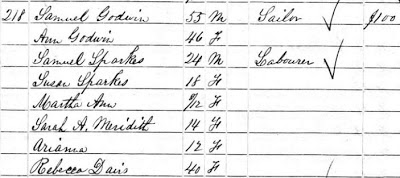 218 Samuel Godwin 55 M Sailor $100
Ann Godwin 46 F
Samuel Sparkes 24 M Labourer
Susan Sparkes 18 F
Martha Ann /12 F
Sarah A. Meridith 14 F
Ariama 12 F
Rebecca Davis 40 F